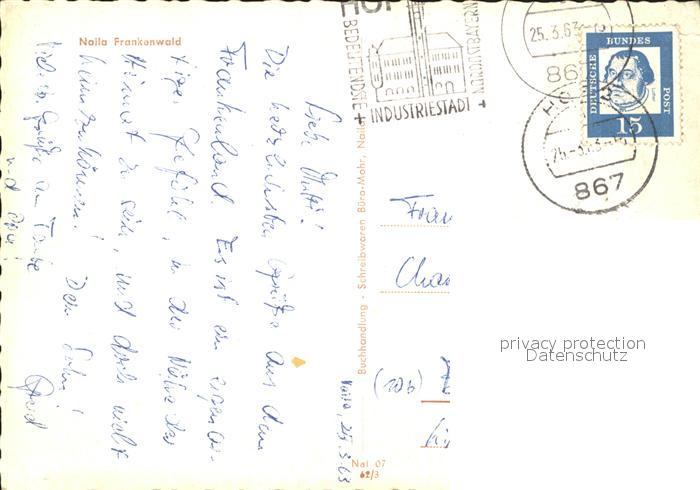 Naila Frankenwald
Liebe Mutti!
Die herzlichsten Grüße aus dem
Frankenland. Es ist ein eigenar-
tiges Gefühl, in der Nähe der
Heimat zu sein, und doch nicht
heimzukönnen! Dein Sohn!
Viele Grüße an Tante
und
Naila, 25.3.63
Buchhandlung - Schreibwaren Büro-Mohr, Naila
Nai 07
62/3
HOF
BEDEUTENDSTE
INDUSTRIESTADT
NORDOSTBAYERNS
25.3.63
867
HOF
25.-3.63
867
DEUTSCHE
BUNDES
POST
15
Frau
(10b)
privacy protection
Datenschutz